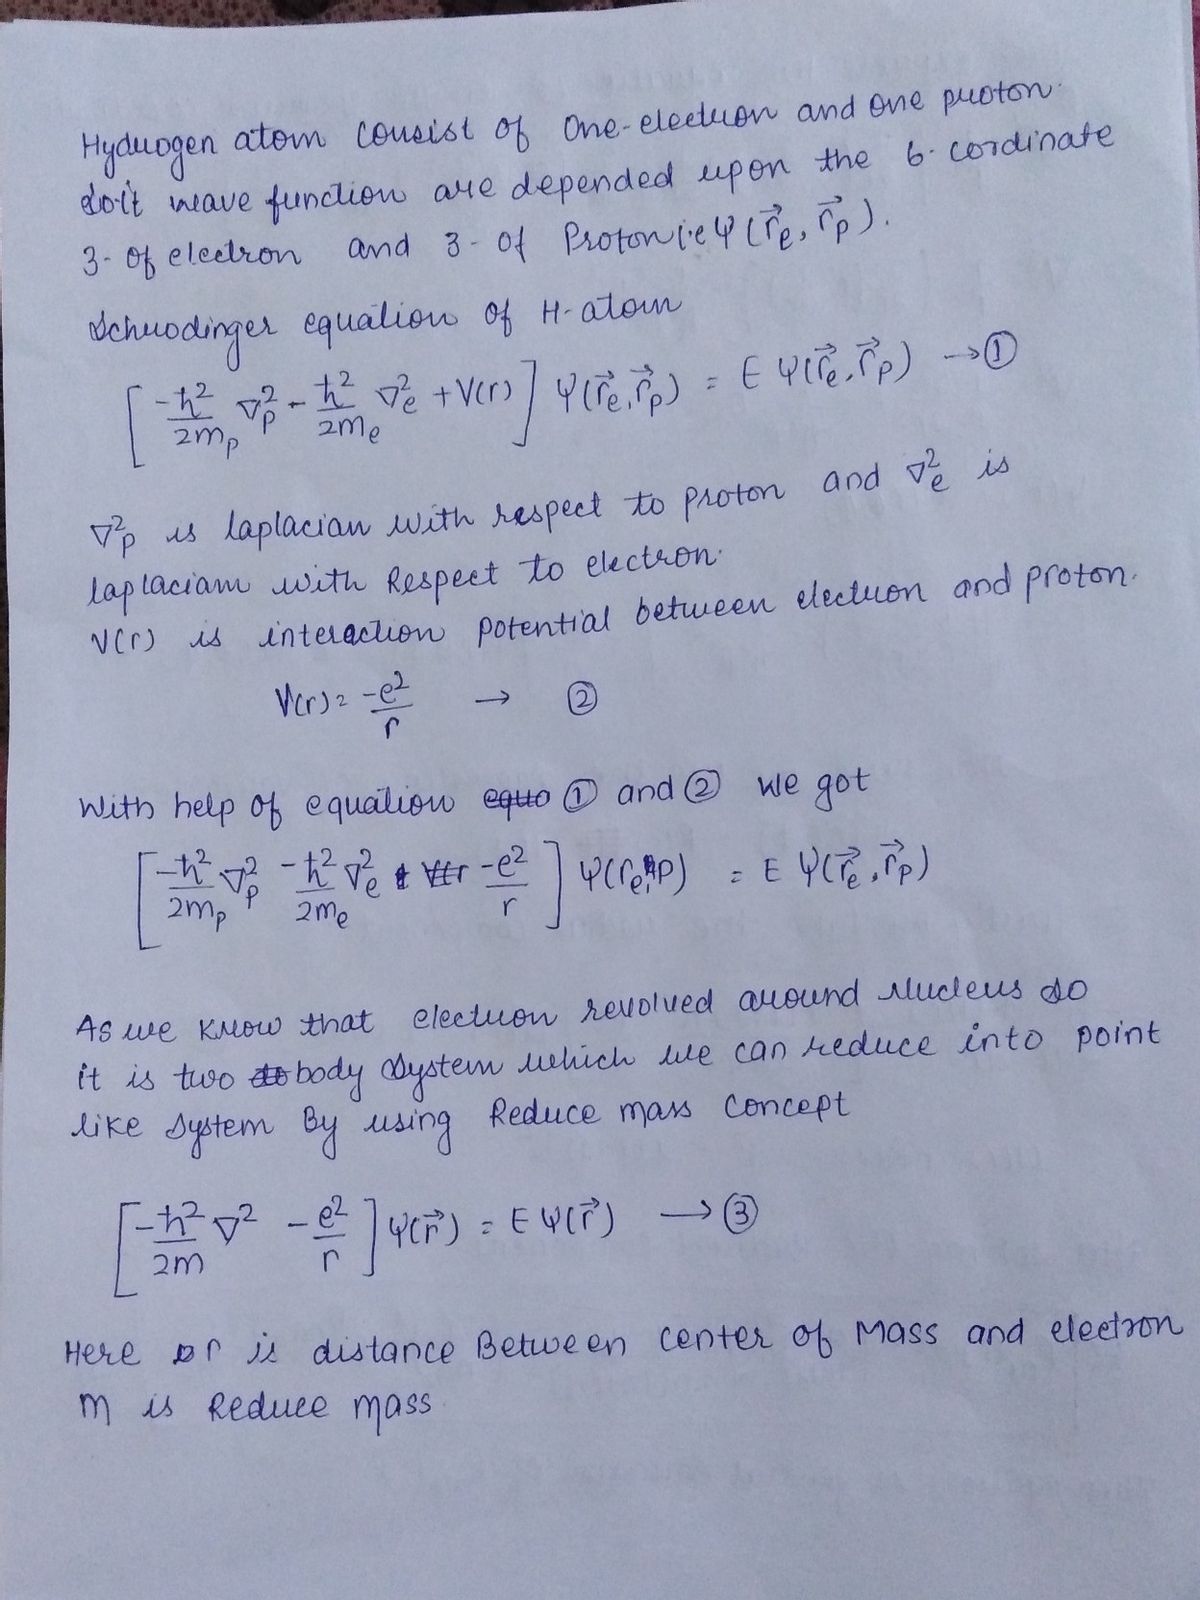 Hydrogen atom consist of one-electron and one proton.
So it wave function are depended upon the 6-cordinate
3-of electron and 3-of Proton i.e Ψ(r⃗e, r⃗p).
Schrodinger equation of H-atom
[-ħ²/2mp ∇²p - ħ²/2me ∇²e + V(r)] Ψ(r⃗e, r⃗p) = E Ψ(r⃗e, r⃗p) → ①
∇²p is laplacian with respect to proton and ∇²e is
laplaciam with Respect to electron.
V(r) is interaction potential between electron and proton.
V(r) = -e²/r → ②
With help of equation ① and ② we got
[-ħ²/2mp ∇²p -ħ²/2me ∇²e -e²/r] Ψ(re, rp) = E Ψ(r⃗e, r⃗p)
As we know that electron revolved around Nucleus so
it is two body system which we can reduce into point
like system By using Reduce mass concept
[-ħ²/2m ∇² - e²/r] Ψ(r⃗) = E Ψ(r⃗) → ③
Here r is distance Between center of Mass and electron
m is Reduce mass.